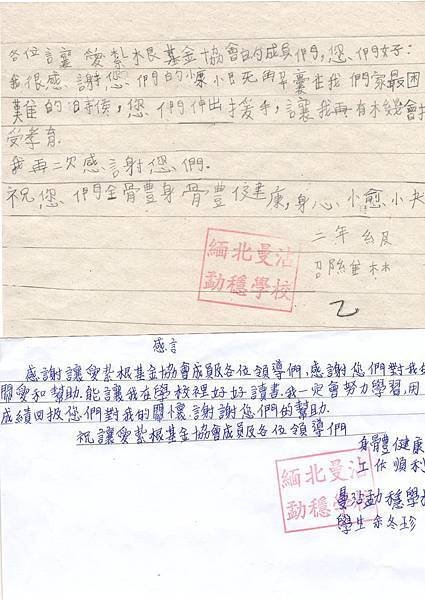 各位讓愛紮根基金協會的成員們,您們好:
我很感謝您們的慷慨解囊在我們家最困
難的時候,您們伸出援手,讓我再有機會接
受孝育.
我再二次感謝您們.
祝您們全體身體健康,身心愉快
二年級
緬北曼沾
勐穩學校
乙
感言
感謝讓愛紮根基金協會成員及各位領導們,感謝您們對我的
關愛和幫助.能讓我在學校裡好好讀書.我一定會努力學習,用
成績回报您們對我的關懷.謝謝您們的幫助.
祝讓愛紮根基金協會成員及各位領導們
身體健康
工作順利
緬北曼沾
勐穩學校
曼沾勐穩學校
學生 冬珍